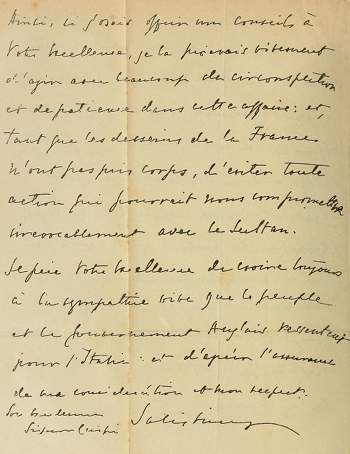 Ainsi, si j'osais offrir mes conseils à
Votre Excellence, je la prierais vivement
d'agir avec beaucoup de circonspection
et de patience dans cette affaire: et,
tant que les desseins de la France
n'ont pas pris corps, d'éviter toute
action qui pourrait nous compromettre
irrevocablement avec le Sultan.
Je prie Votre Excellence de croire toujours
à la sympathie vive que le peuple
et le Gouvernement Anglais ressentent
pour l'Italie: et d'agréer l'assurance
de ma considération et mon respect.
Son Excellence
Signor Crispi
Salisbury